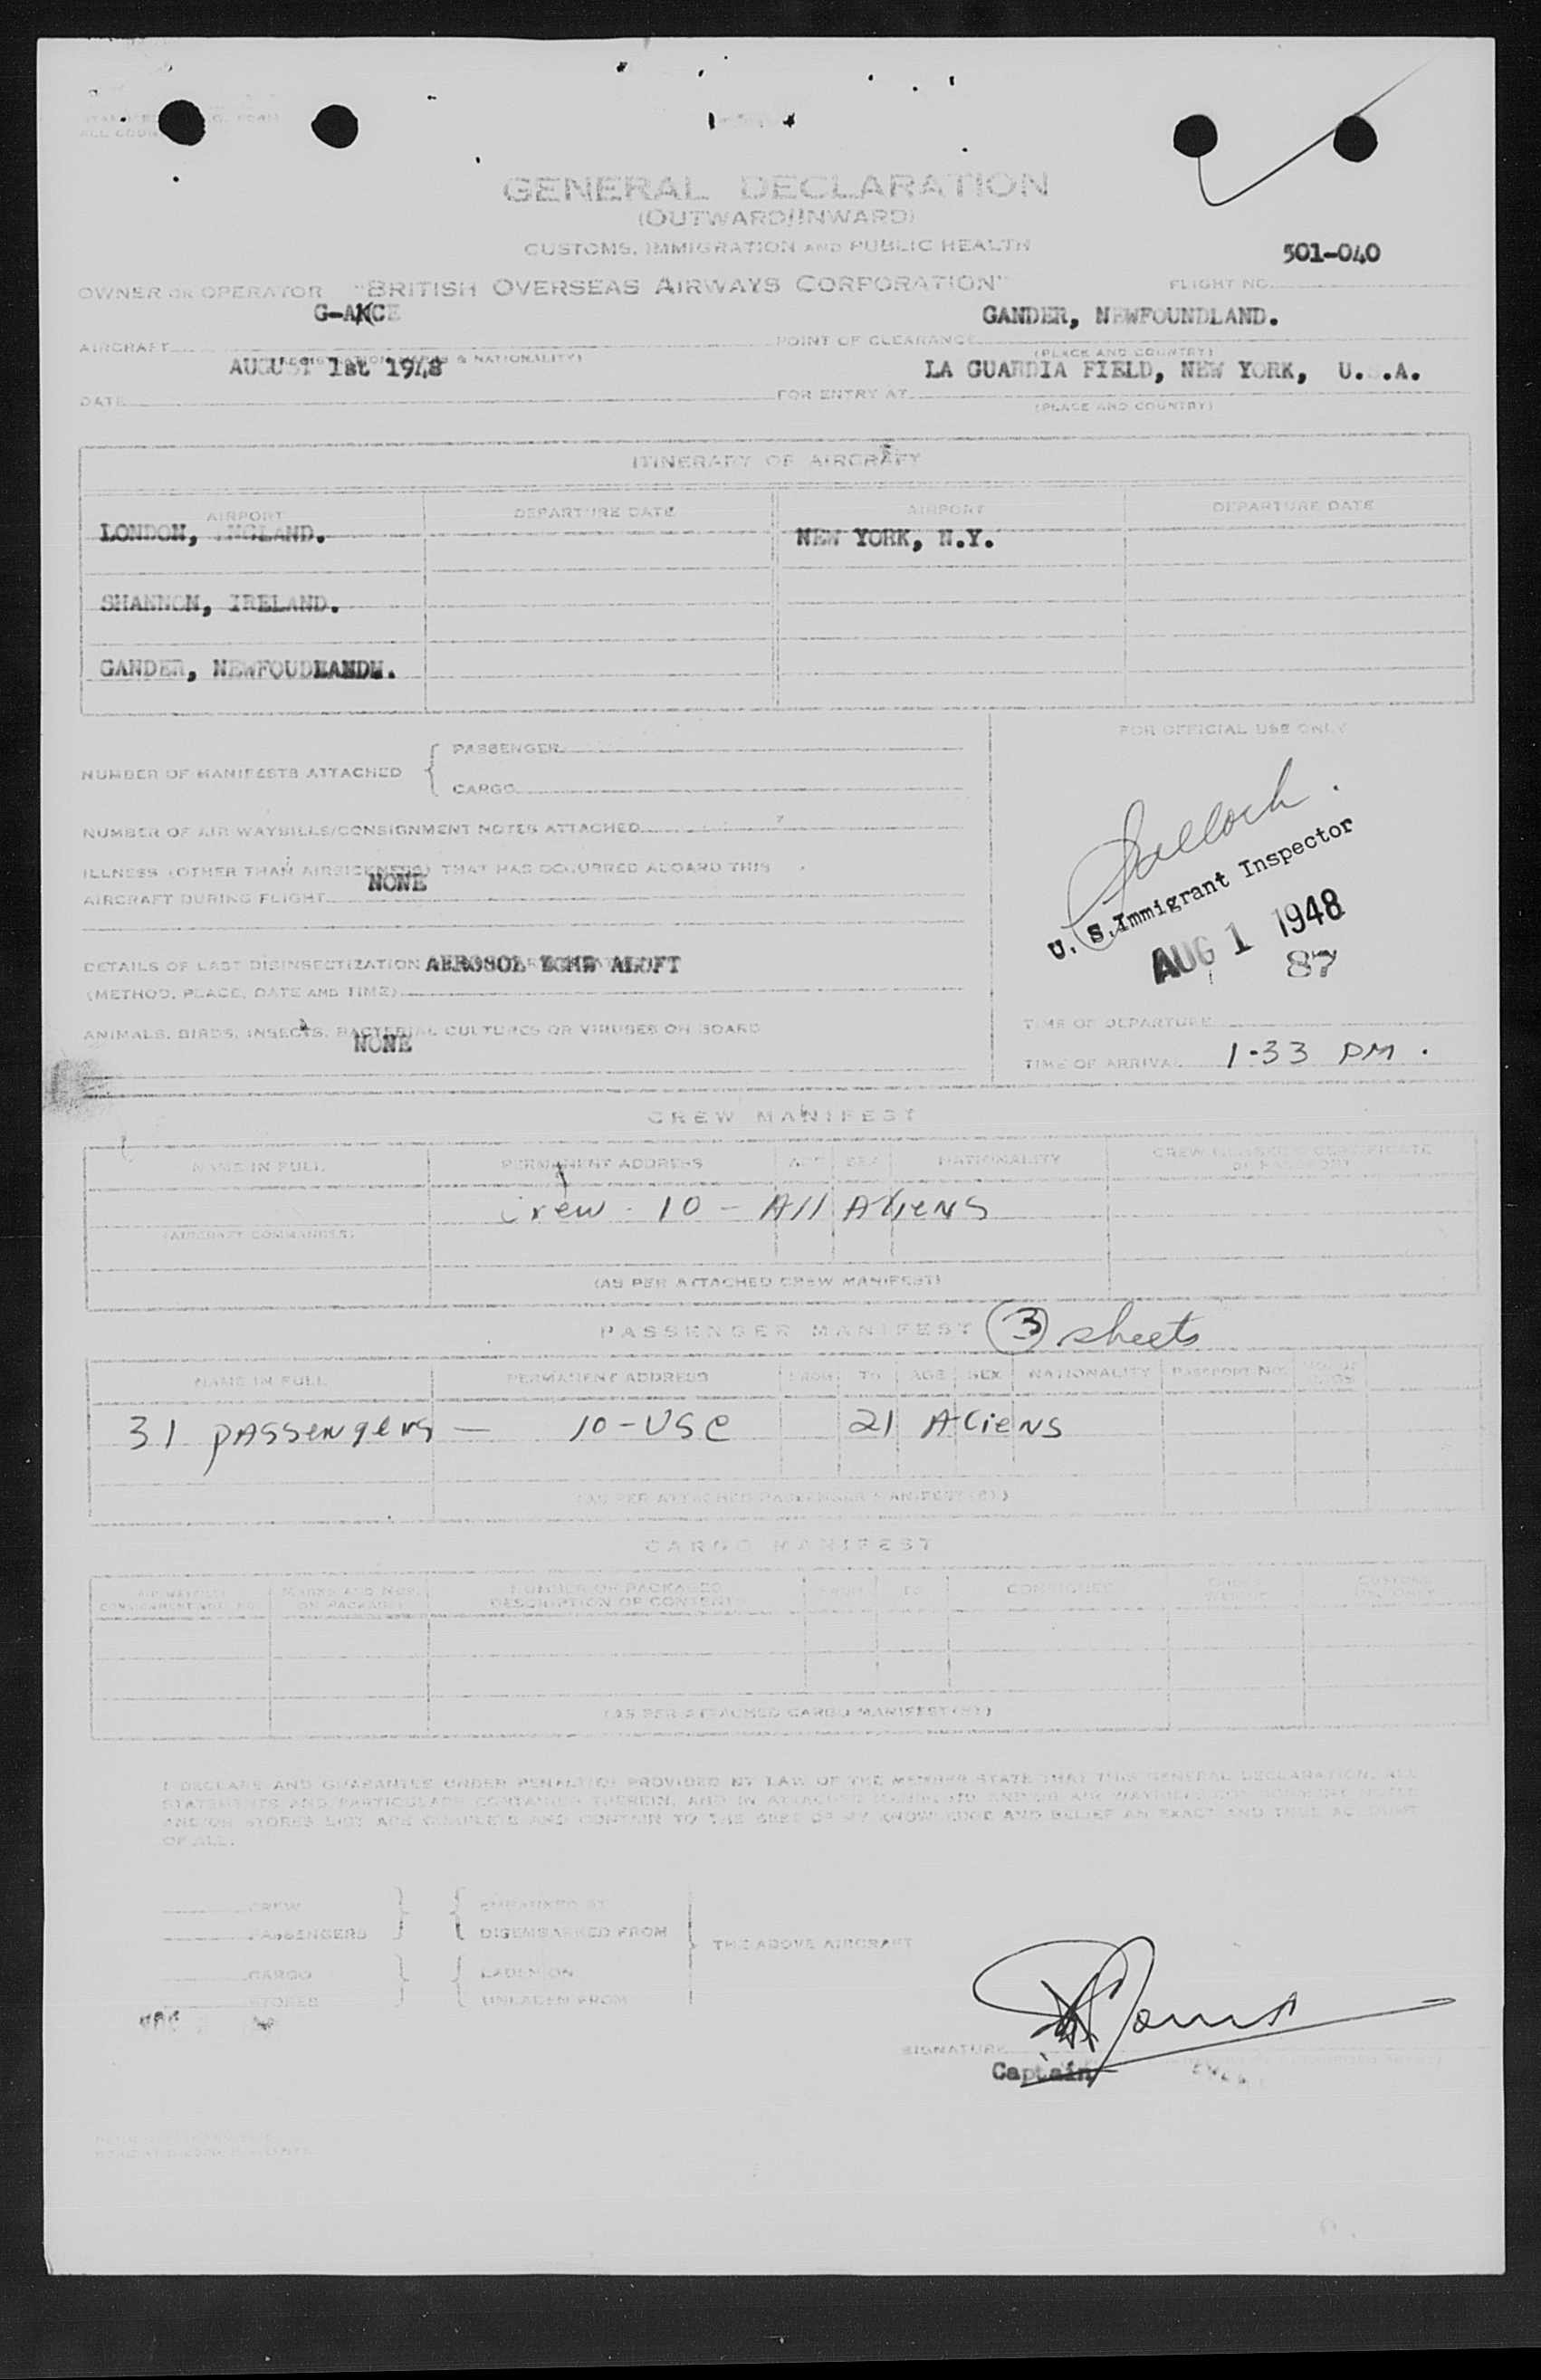 GENERAL DECLARATION
(OUTWARD/INWARD)
CUSTOMS, IMMIGRATION AND PUBLIC HEALTH
501-040
OWNER OR OPERATOR "BRITISH OVERSEAS AIRWAYS CORPORATION"
FLIGHT NO.
G-AKCE
GANDER, NEWFOUNDLAND.
AIRCRAFT
POINT OF CLEARANCE
(REGISTRATION MARKS & NATIONALITY)
(PLACE AND COUNTRY)
AUGUST 1st 1948
LA GUARDIA FIELD, NEW YORK, U.S.A.
DATE
FOR ENTRY AT
(PLACE AND COUNTRY)
ITINERARY OF AIRCRAFT
AIRPORT DEPARTURE DATE AIRPORT DEPARTURE DATE
LONDON, ENGLAND. NEW YORK, N.Y.
SHANNON, IRELAND.
GANDER,
FOR OFFICIAL USE ONLY
NUMBER OF MANIFESTS ATTACHED
PASSENGER
CARGO
NUMBER OF AIR WAYBILLS/CONSIGNMENT NOTES ATTACHED
ILLNESS (OTHER THAN AIRSICKNESS) THAT HAS OCCURRED ABOARD THIS
NONE
AIRCRAFT DURING FLIGHT
U. S. Immigrant Inspector
AUG 1 1948
87
DETAILS OF LAST DISINSECTIZATION AEROSOL BOMB ALOFT
(METHOD, PLACE, DATE AND TIME)
ANIMALS, BIRDS, INSECTS, BACTERIAL CULTURES OR VIRUSES ON BOARD
NONE
TIME OF DEPARTURE
TIME OF ARRIVAL 1-33 PM.
CREW MANIFEST
NAME IN FULL PERMANENT ADDRESS AGE SEX NATIONALITY
Crew - 10 - All Aliens
(AIRCRAFT COMMANDER)
(AS PER ATTACHED CREW MANIFEST)
PASSENGER MANIFEST 3 sheets
NAME IN FULL PERMANENT ADDRESS FROM TO AGE SEX NATIONALITY PASSPORT NO.
31 passengers — 10-USC 21 Aliens
(AS PER ATTACHED PASSENGER MANIFEST(S))
CARGO MANIFEST
MARKS AND NOS. ON PACKAGES
NUMBER OF PACKAGES
DESCRIPTION OF CONTENTS
FROM TO CONSIGNEE
(AS PER ATTACHED CARGO MANIFEST(S))
I DECLARE AND GUARANTEE UNDER PENALTIES PROVIDED BY LAW OF THE MEMBER STATE THAT THIS GENERAL DECLARATION, ALL
STATEMENTS AND PARTICULARS CONTAINED THEREIN, AND IN ATTACHED
AND/OR STORES LIST ARE COMPLETE AND CONTAIN TO THE BEST OF MY KNOWLEDGE AND BELIEF AN EXACT AND TRUE ACCOUNT
OF ALL.
CREW EMBARKED AT
PASSENGERS DISEMBARKED FROM
THE ABOVE AIRCRAFT
CARGO LADEN ON
STORES UNLADEN FROM
SIGNATURE
Captain